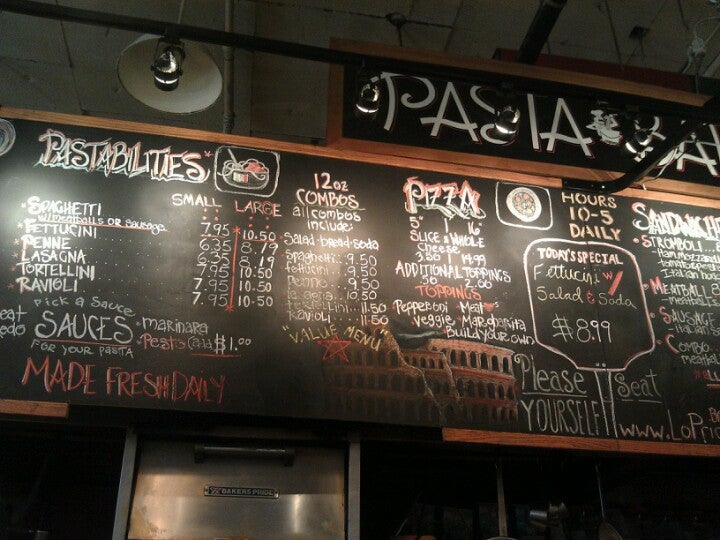 PASTA
PASTABILITIES
SMALL LARGE
SPAGHETTI
w/meatballs or Sausage 7.95 10.50
FETTUCINI 6.35 8.79
PENNE 6.35 8.79
LASAGNA 7.95 10.50
TORTELLINI 7.95 10.50
RAVIOLI 7.95 10.50
pick a Sauce
SAUCES
FOR YOUR PASTA
marinara
Pesto (add $1.00
MADE FRESH DAILY
12oz
COMBOS
all combos
include:
Salad-bread-soda
Spaghetti 9.50
fettucini 9.50
Penne 9.50
11.50
Ravioli 11.50
"VALUE MENU"
PIZZA
5" 16"
SLICE & WHOLE
Cheese
3.50 14.99
ADDITIONAL TOPPINGS
.50 2.00
TOPPINGS
Pepperoni Meat
veggie Margharita
BUILD YOUR OWN
HOURS
10-5
DAILY
TODAY'S SPECIAL
Fettucini w/
Salad & Soda
$8.99
Please Seat
YOURSELF!
SANDWICH
STROMBOLI
Ham, mozzarella
Italian
MEATBALL
meatballs
SAUSAGE
Italian
COMBO
www.LoPri
BAKERS PRIDE